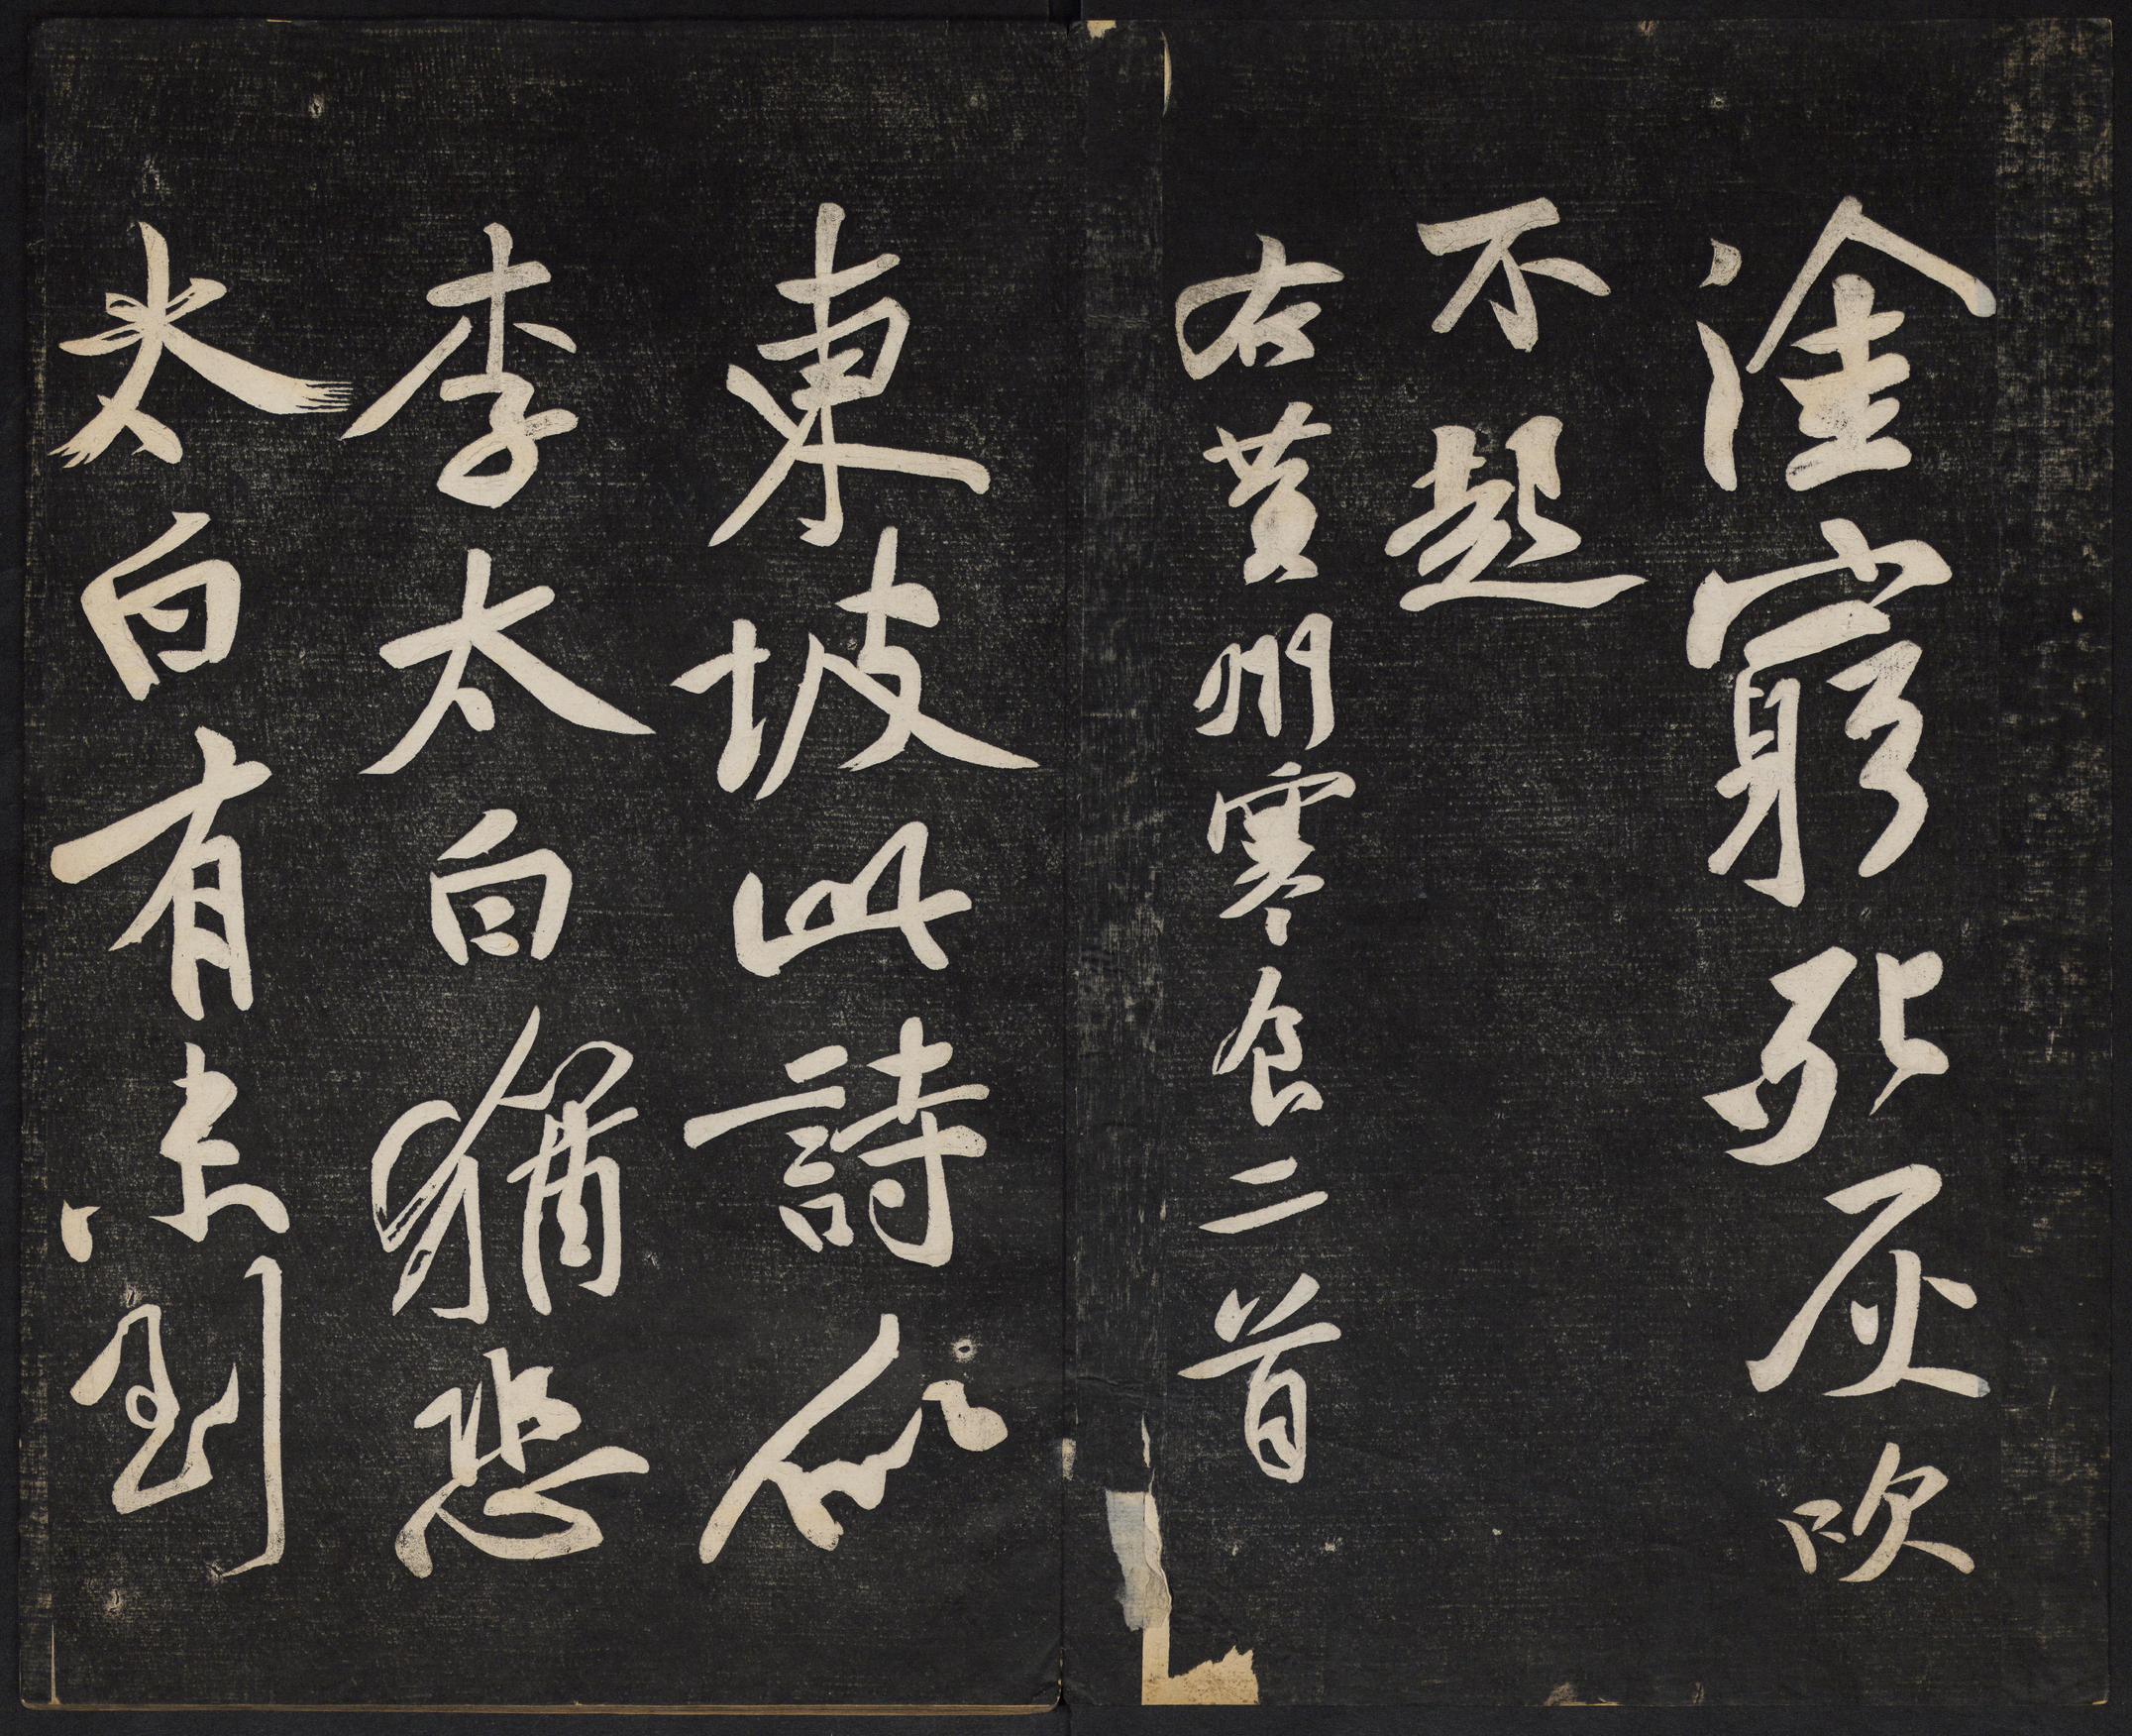 塗窮死灰吹
不起
右黄州寒食二首
東坡此詩似
李太白猶恐
太白有未到